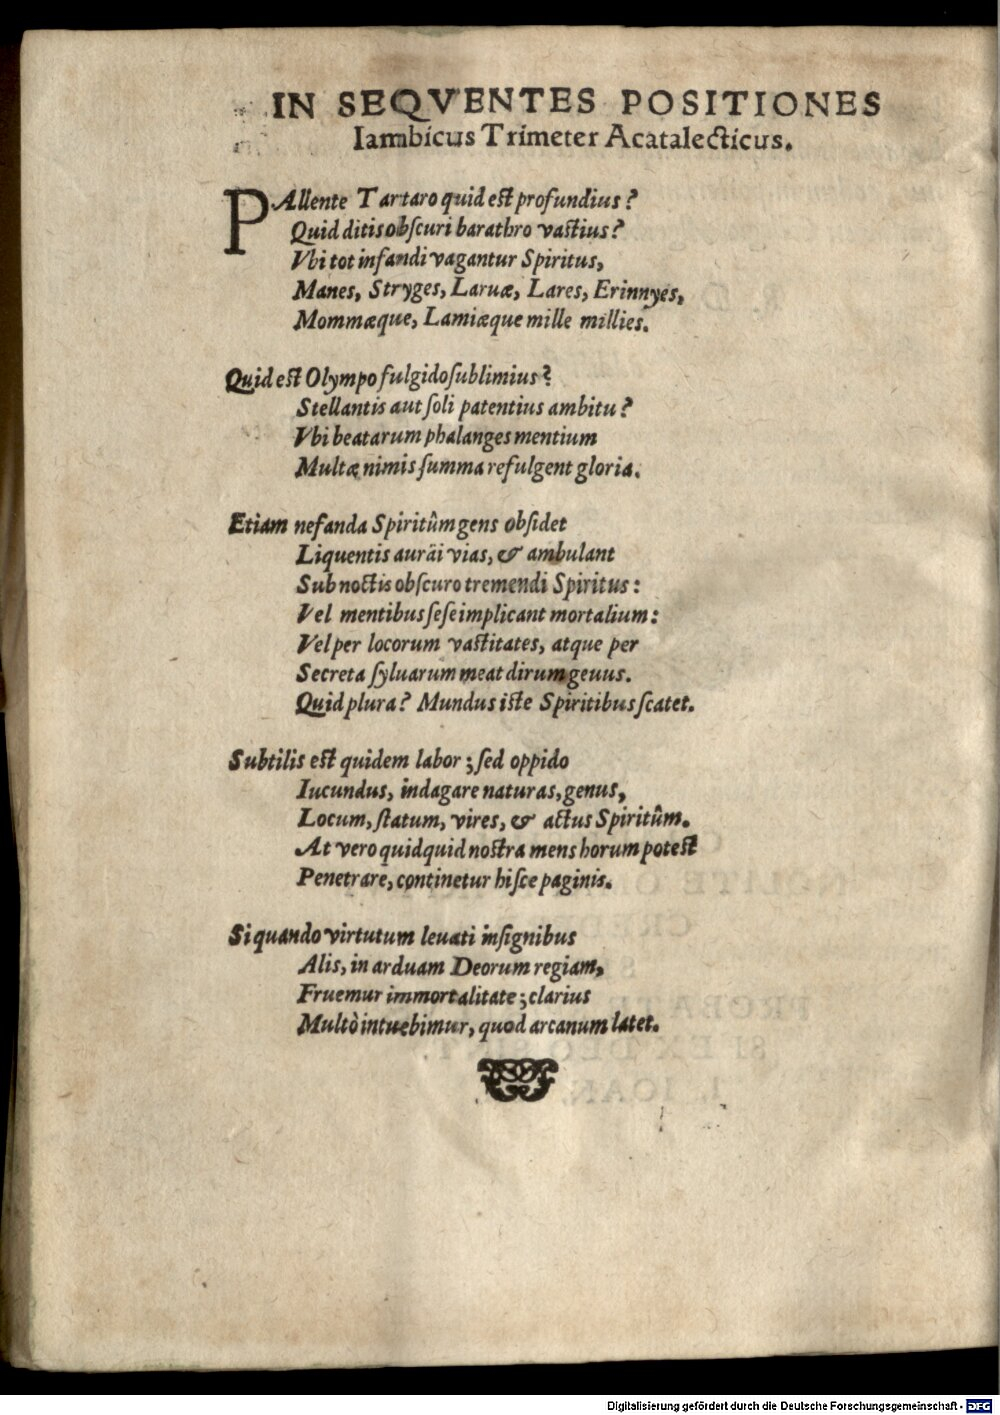 IN SEQVENTES POSITIONES
Iambicus Trimeter Acatalecticus.
PAllente Tartaro quid est profundius?
Quid ditis obſcuri barathro vastius?
Vbi tot infandi vagantur Spiritus,
Manes, Stryges, Laruæ, Lares, Erinnyes,
Mommæque, Lamiæque mille millies.
Quid est Olympo fulgido ſublimius?
Stellantis aut ſoli patentius ambitu?
Vbi beatarum phalanges mentium
Multæ nimis ſumma refulgent gloria.
Etiam nefanda Spiritûm gens obſidet
Liquentis auräi vias, & ambulant
Sub noctis obſcuro tremendi Spiritus:
Vel mentibus ſeſe implicant mortalium:
Vel per locorum vastitates, atque per
Secreta ſyluarum meat dirum geuus.
Quid plura? Mundus iste Spiritibus ſcatet.
Subtilis est quidem labor; ſed oppido
Iucundus, indagare naturas, genus,
Locum, ſtatum, vires, & actus Spiritûm.
At vero quidquid nostra mens horum potest
Penetrare, continetur hiſce paginis.
Si quando virtutum leuati inſignibus
Alis, in arduam Deorum regiam,
Fruemur immortalitate; clarius
Multò intuebimur, quod arcanum latet.
Digitalisierung gefördert durch die Deutsche Forschungsgemeinschaft - DFG